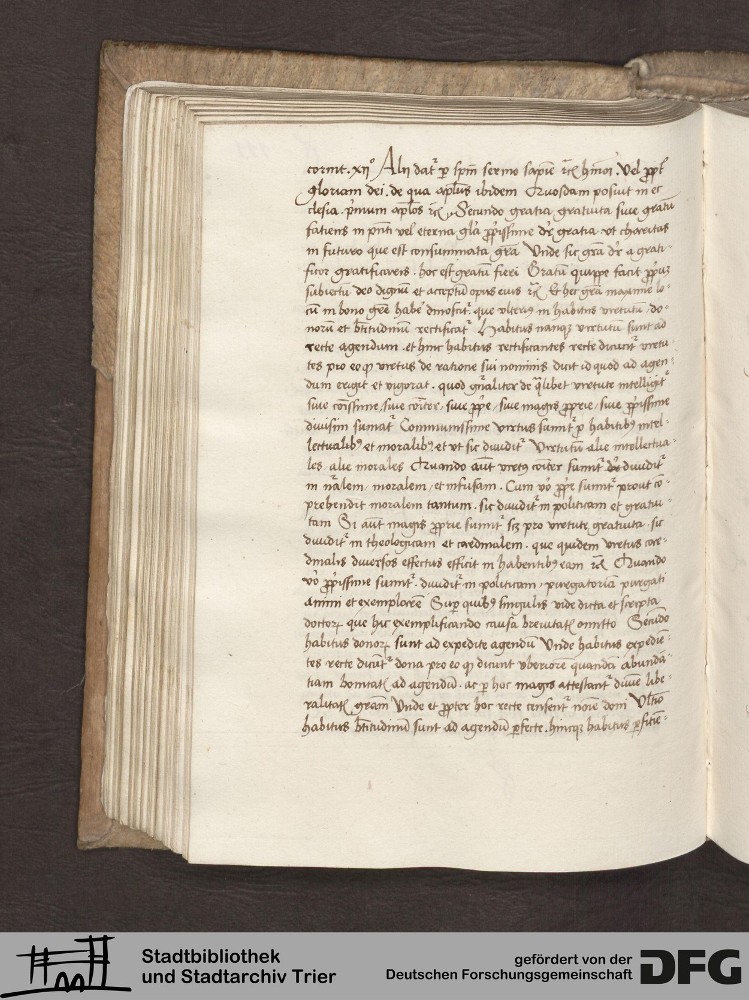 corint. xijº Alij dat᷑ p̲ sp̄m sermo sapīe ⁊cͣ hm̄oi. Vel ꝓpt᷑
gloriam dei. de qua apl̄us ibidem Quosdam posuit in ec
clesia. p̄mum apl̄os ⁊cͣ Secundo gratia gratuita siue gratū
faciens in p̄nti vel eterna gl̄a ꝓp̄issime dr̄ gratia vt charitas
in futuro que est consummata grā Vnde sic grā dr̄ a grati-
ficor gratificaris. hoc est gratū fieri Gratū quippe facit
subiectū deo dignū et acceptū opus eius ⁊cͣ Et hec grā maxime lo-
cū in bono gn̄e habē dinoscit᷑. que vlterius in habitus virtutū do-
norū et b̄titudinū rectificat᷑ Habitus nanqꝫ virtutū sunt ad
recte agendum. et hinc habitus rectificantes recte dicūt᷑ virtu-
tes pro eo qꝫ virtus de ratione sui nominis dicit id quod ad agen-
dum erigit et vigorat. quod gn̄aliter de q̄libet virtute intelligit᷑
siue cōissime, siue cōiter, siue ꝓp̄e, siue magis proprie, siue ꝓp̄issime
diuisim sumat᷑ Communissime virtus sumit᷑ ꝓ habitibꝫ intel-
lectualibꝫ et moralibꝫ et vt sic diuidit᷑ Virtutū alie intellectua-
les, alie morales Quando aūt virtus cōiter sumit᷑ diuidit᷑
in nr̄alem, moralem, et infusam. Cum vō ꝓp̄e sumit᷑ prout cō-
prehendit moralem tantum. sic diuidit᷑ in politicam et gratui-
tam Si aūt magis proprie sumit᷑ scꝫ pro virtute gratuita. sic
diuidit᷑ in theologicam et cardinalem. que quidem virtus car-
dinalis diuersos effectus efficit in habentibꝫ eam ⁊cͣ Quando
vō ꝓp̄issime sumit᷑. diuidit᷑ in politicam, purgatoriā purgati
animi et exemplarē Sup̲ quibꝫ singulis vide dicta et scripta
doctorꝝ que hic exemplificando causa breuitatꝭ omitto Secūdo
habitus donorꝝ sunt ad expedite agendū Vnde habitus expedien-
tes recte dicūt᷑ dona pro eo qꝫ dicunt vberiorē quandā abundā-
tiam bonitatꝭ ad agendū. ac p̲ hoc magis attestant᷑ diuine libe-
ralitatꝭ gratiam Vnde et ꝓpter hoc recte censent᷑ noīe doni Vltio
habitus b̄titudinū sunt ad agendū p̲fecte. hincqꝫ habitus p̲ficiē-
Stadtbibliothek
und Stadtarchiv Trier
gefördert von der
Deutschen Forschungsgemeinschaft
DFG